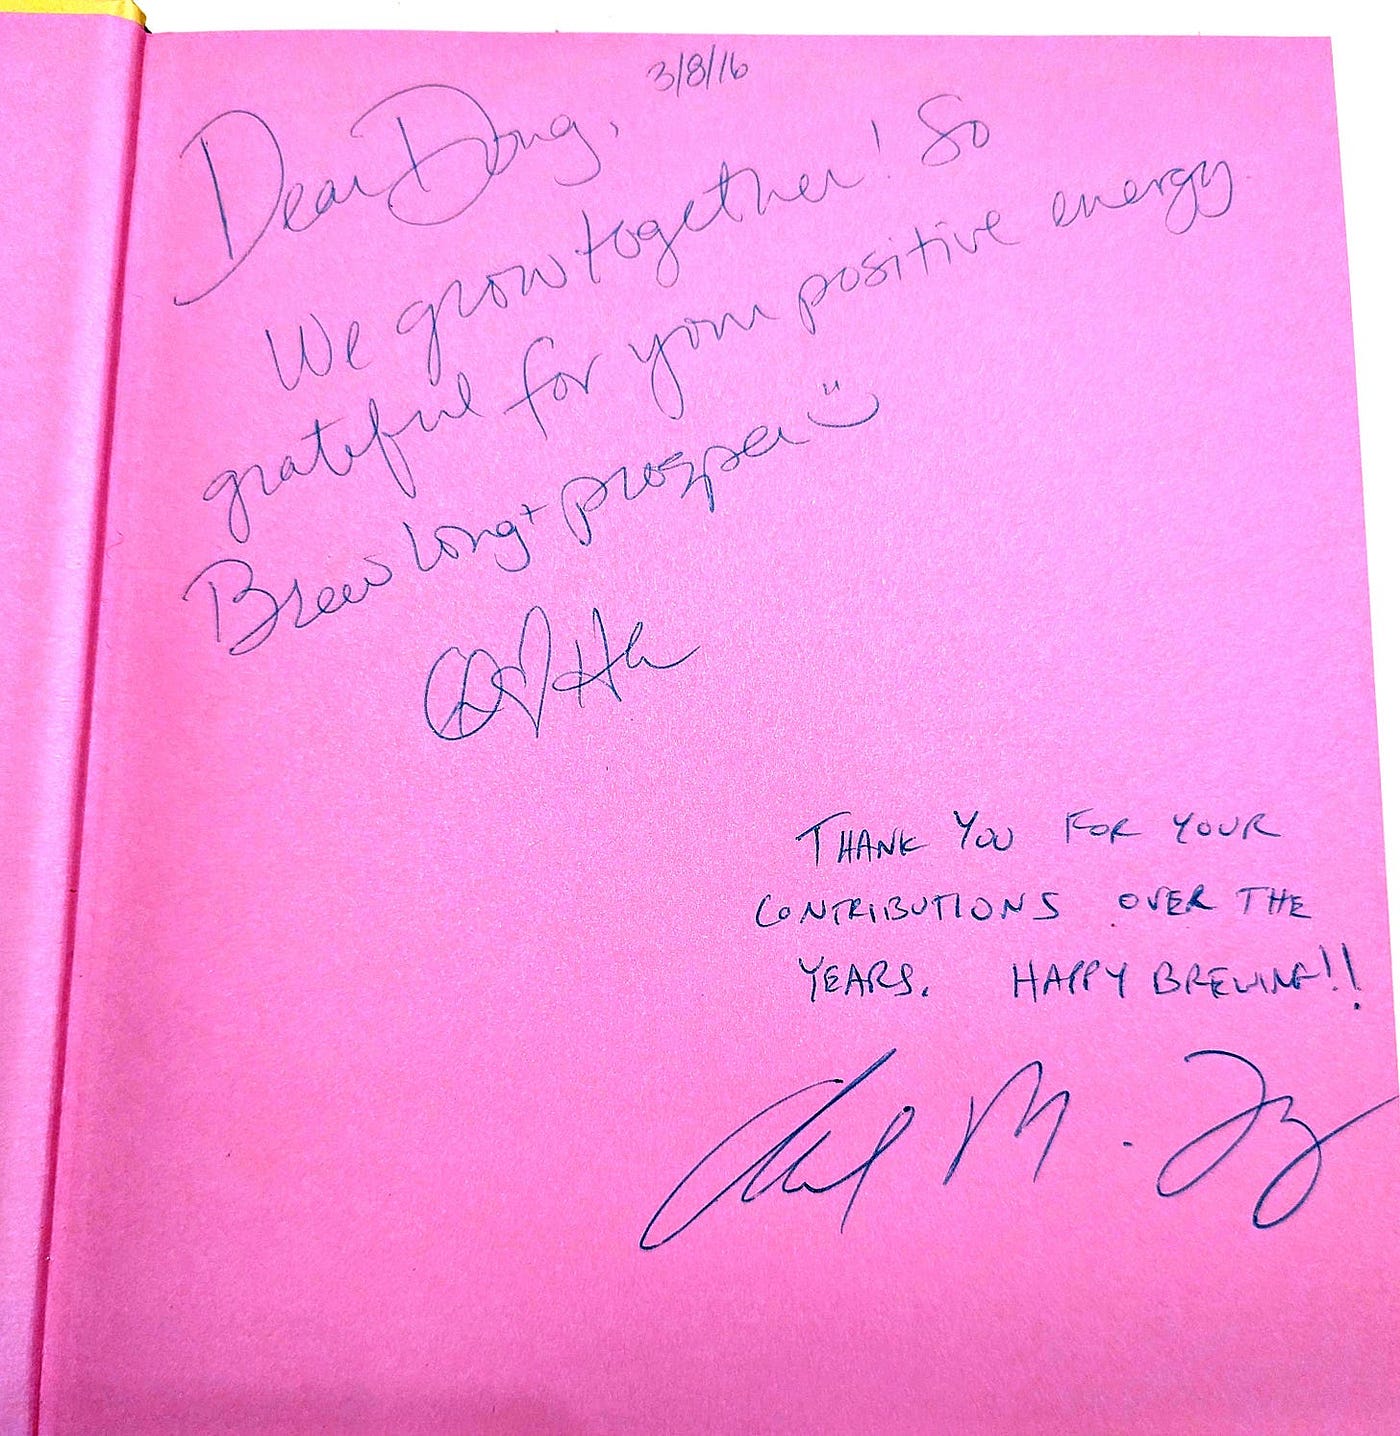 3/8/16
Dear Doug,
We grow together! So
grateful for your positive energy
Brew long + prosper
THANK YOU FOR YOUR
CONTRIBUTIONS OVER THE
YEARS. HAPPY BREWING!!